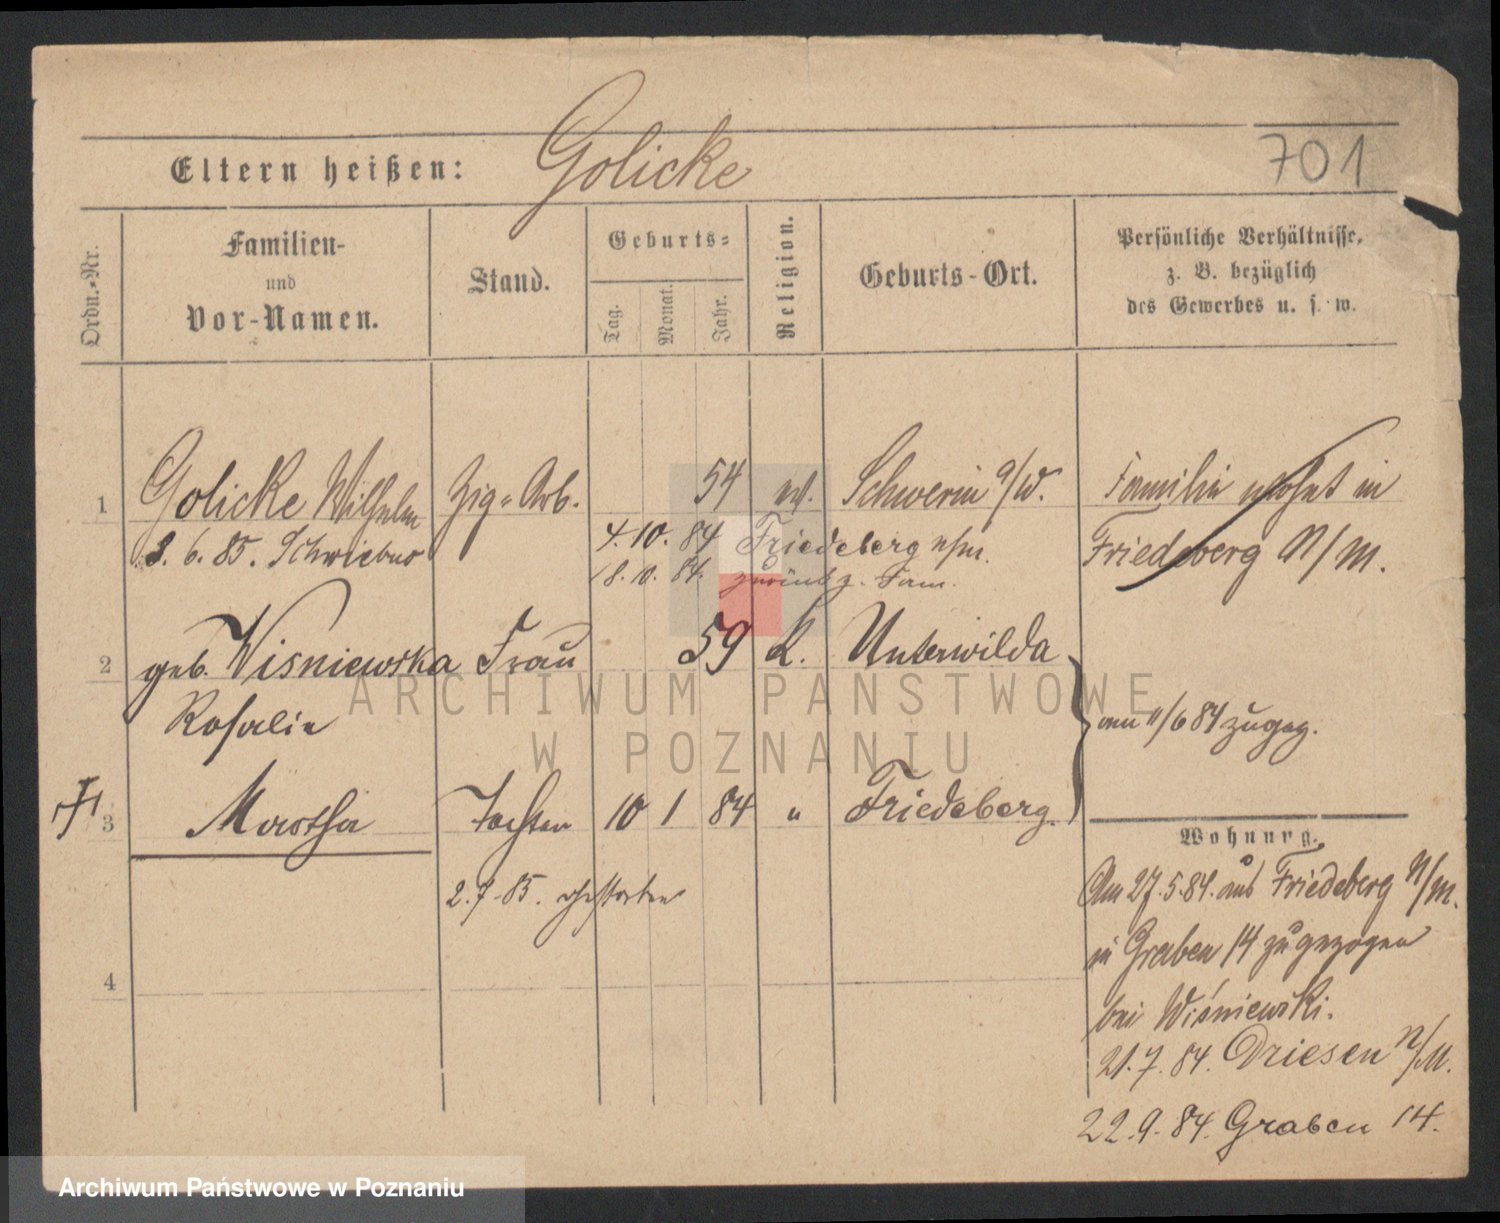 Golicke
Eltern heißen:
701
Ordn.-Nr.
Familien-
und
Vor-Namen.
Stand.
Geburts-
Tag.
Monat.
Jahr.
Religion.
Geburts-Ort.
Persönliche Verhältnisse,
z. B. bezüglich
des Gewerbes u. s. w.
1 Golicke Wilhelm Zig.-Arb. 54 ev. Schwerin a/W. Familie wohnt in
Friedeberg N/M.
3. 6. 85. Schwiebus
4. 10. 84 Friedeberg n/m.
18. 10. 84. zurück z. Fam.
2 geb. Wisniewska Frau 59 k. Unterwilda
Rosalie
am 11/6 84 zugez.
3 Martha Tochter 10 1 84 " Friedeberg.
2. 7. 85. gestorben
4
Wohnung.
Am 27. 5. 84. aus Friedeberg N/M.
in Graben 14 zugezogen
bei Wiśniewski.
21. 7. 84. Driesen N/M.
22. 9. 84. Graben 14.
ARCHIWUM PAŃSTWOWE
W POZNANIU
Archiwum Państwowe w Poznaniu